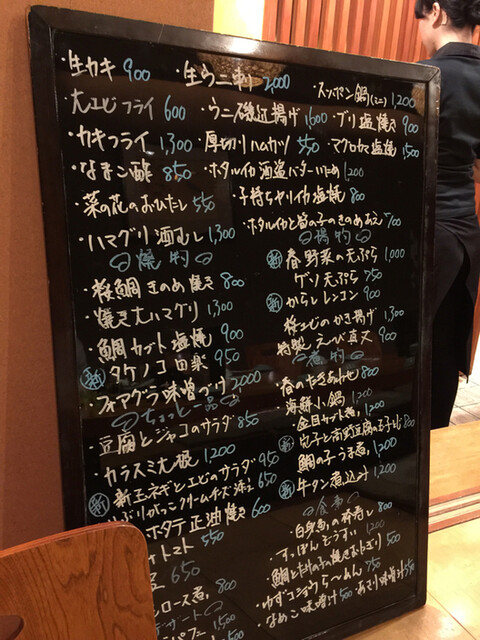 ・生カキ 900
・生ウニ刺 2000
・スッポン鍋(ミニ) 1,200
・大エビフライ 600
・ウニ磯辺揚げ 1600
・ブリ塩焼き 900
・カキフライ 1,300
・厚切りハムカツ 550
・マグロカマ塩焼 1,500
・なまこ酢 850
・ホタルイカ酒盗バターいため 1,200
・菜の花のおひたし 550
・子持ちヤリイカ塩焼 800
・ハマグリ酒むし 1,300
・ホタルイカと筍の子のきのめあえ 700
焼物
・桜鯛きのめ焼き 800
・焼き大ハマグリ 1,300
・鯛カブト塩焼 900
新 タケノコ 950
フォアグラ味噌づけ 2000
ちょっと一品
・豆腐とジャコのサラダ 850
・カラスミ大根 1200
新 新玉ネギとエビのサラダ 950
いぶりがっこクリームチーズ添え 650
ホタテ正油焼き 600
トマト 550
650
ロース煮 800
デザート
1500
揚物
新 春野菜の天ぷら 1,000
ゲソ天ぷら 750
新 からしレンコン 900
桜エビのかき揚げ 1,300
特製えーび真丈 900
煮物
・春のたきあわせ 800
・海鮮小鍋 1,200
・金目カブト煮 1,200
新 鯛の子うま煮 1,200
新 牛タン煮込み 1,200
食事
・白魚の 800
・すっぽんぞうすい 1,200
・鯛とたけの子の焼きおにぎり 500
・ゆずコショウらーめん 750
・なめこ味噌汁 500
あさり味噌汁 550